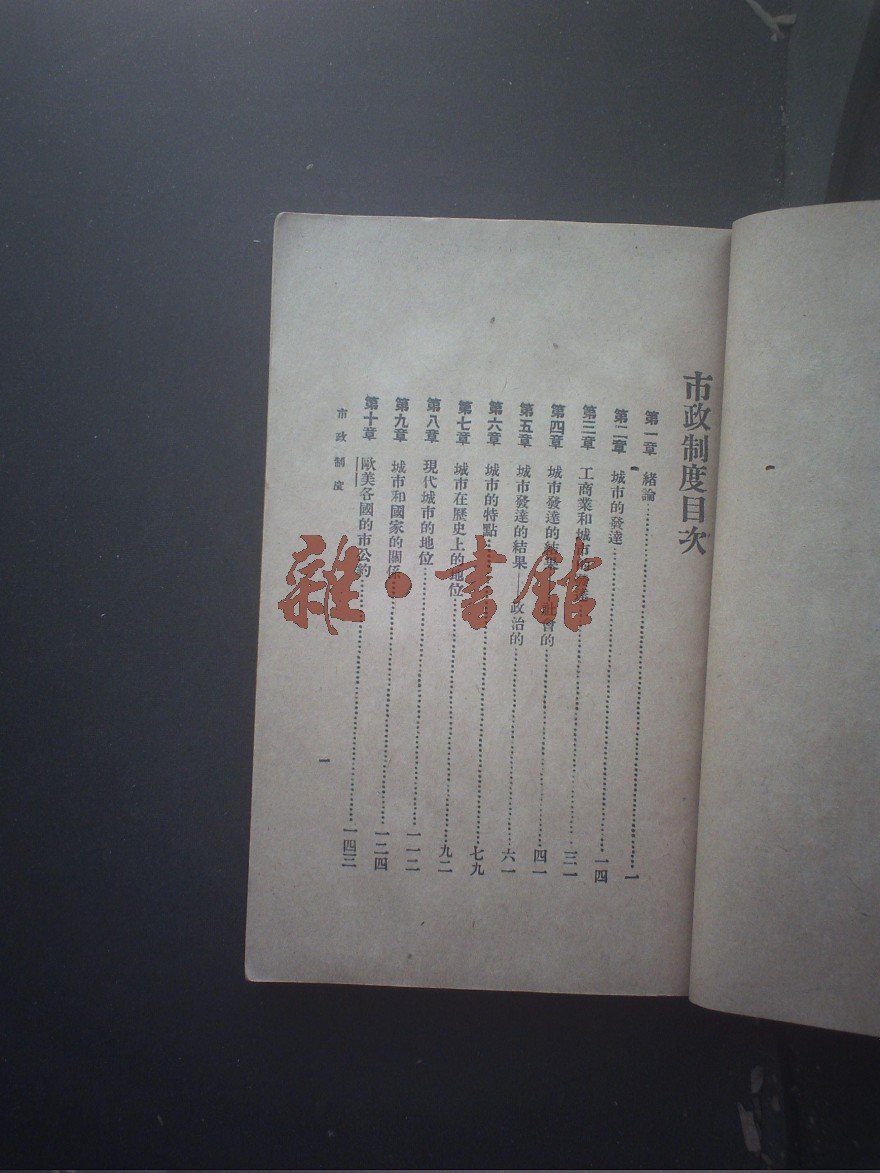 市政制度目次
第一章 緒論……一
第二章 城市的發達……一四
第三章 工商業和城市的發達……三一
第四章 城市發達的結果——社會的……四一
第五章 城市發達的結果——政治的……六一
第六章 城市的特點……七九
第七章 城市在歷史上的地位……九二
第八章 現代城市的地位……一一二
第九章 城市和國家的關係……一二四
第十章 歐美各國的市公約……一四三
市政制度
一
雜·書館